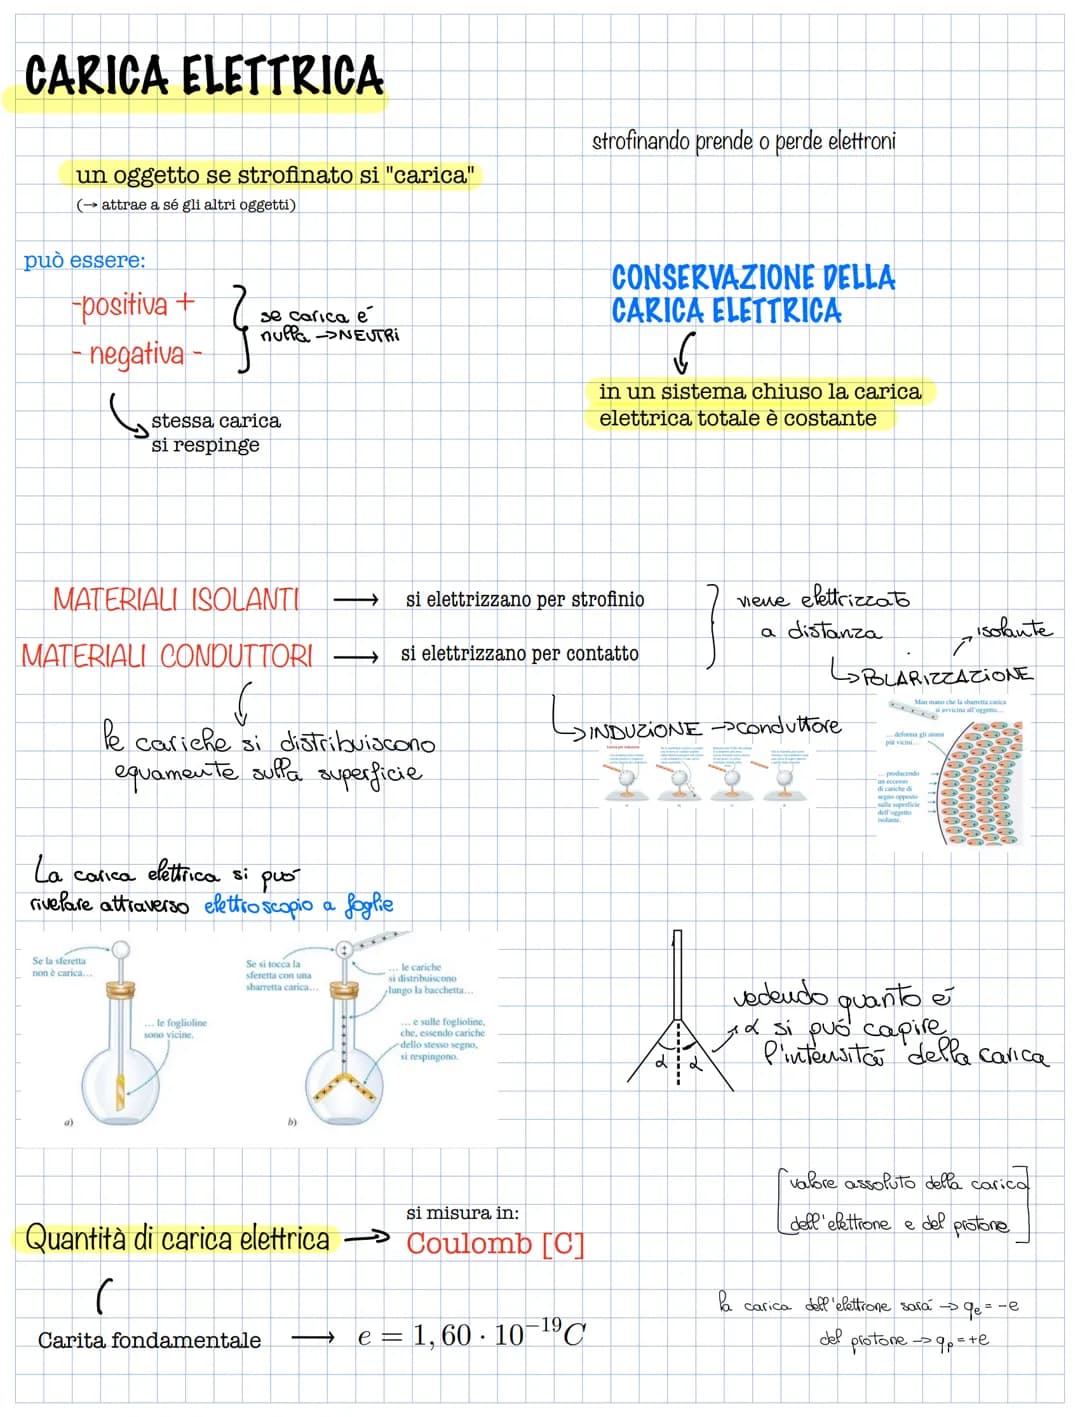 CARICA ELETTRICA
strofinando prende o perde elettroni
un oggetto se strofinato si "carica"
(→ attrae a sé gli altri oggetti)
può essere:
-positiva +
- negativa -
se carica é
nulla →NEUTRi
stessa carica
si respinge
CONSERVAZIONE DELLA
CARICA ELETTRICA
in un sistema chiuso la carica
elettrica totale è costante
MATERIALI ISOLANTI → si elettrizzano per strofinio
MATERIALI CONDUTTORI → si elettrizzano per contatto
viene elettrizzato
a distanza
isolante
↳POLARIZZAZIONE
↳INDUZIONE →conduttore
le cariche si distribuiscono
equamente sulla superficie
Man mano che la sbarretta carica
si avvicina all'oggetto...
...deforma gli atomi
più vicini...
... producendo
un eccesso
di cariche di
segno opposto
sulla superficie
dell'oggetto
isolante.
La carica elettrica si puó
rivelare attraverso elettroscopio a foglie
Se la sferetta
non è carica...
... le foglioline
sono vicine.
a)
Se si tocca la
sferetta con una
sbarretta carica...
... le cariche
si distribuiscono
lungo la bacchetta...
... e sulle foglioline,
che, essendo cariche
dello stesso segno,
si respingono.
b)
α α
vedendo quanto é
α si puó capire
l'intensitá della carica
Quantità di carica elettrica →
si misura in:
Coulomb [C]
[valore assoluto della carica
dell'elettrone e del protone]
Carita fondamentale → e = 1,60 · 10⁻¹⁹C
la carica dell'elettrone sará → qₑ = -e
del protone → qₚ = +e